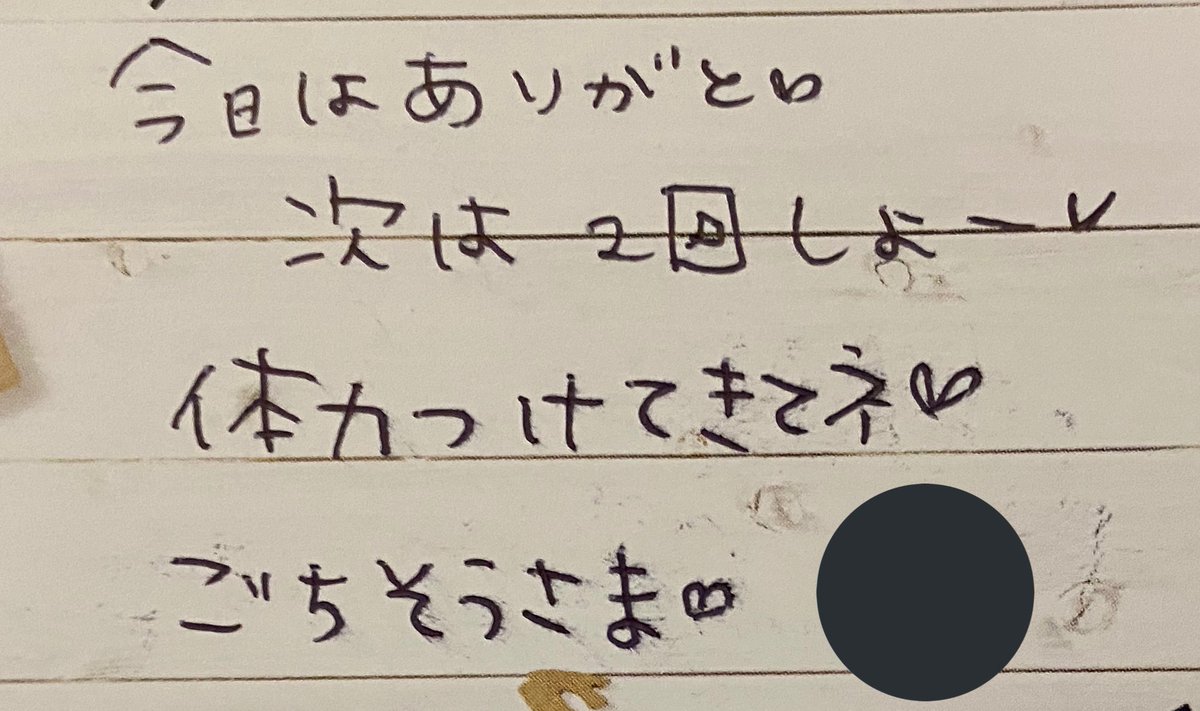 今日はありがと♡
次は2回しよー♡
体力つけてきてネ♡
ごちそうさま♡